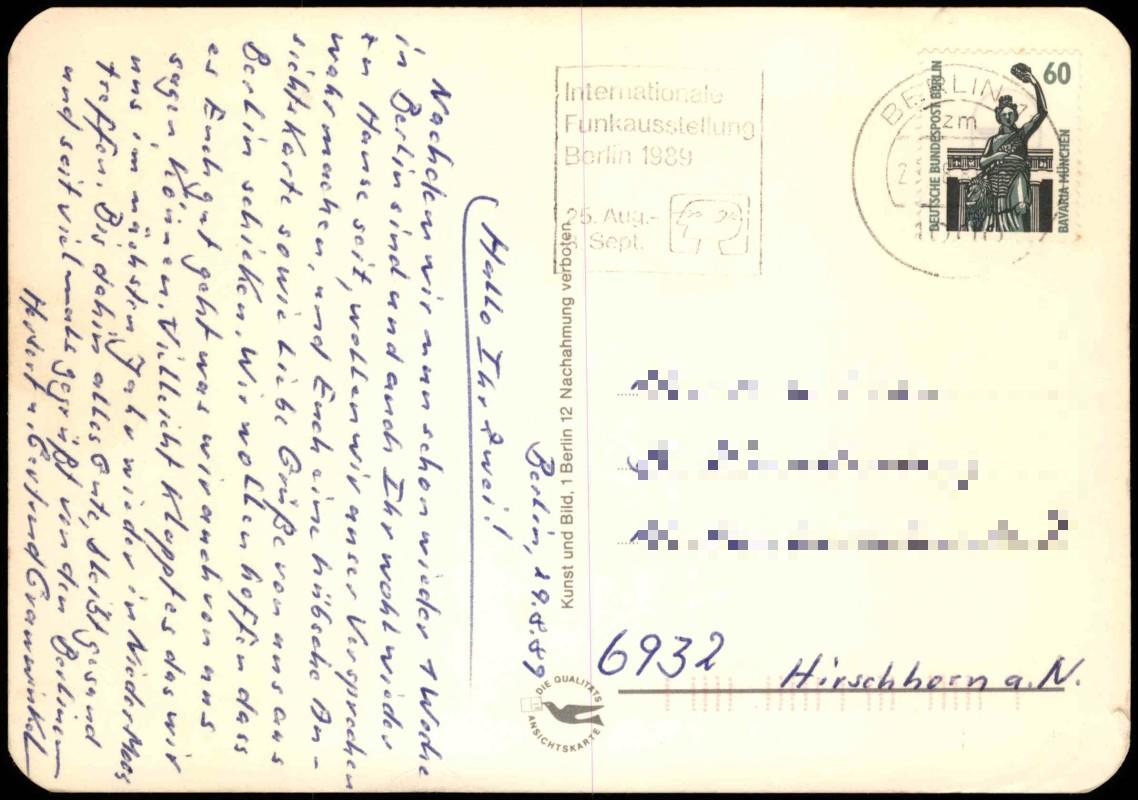 Berlin, 29.8.89
Hallo Ihr zwei!
Nachdem wir nun schon wieder 1 Woche
in Berlin sind und auch Ihr wohl wieder
zu Hause seit, wollen wir unser Versprechen
wahrmachen, und Euch eine hübsche An-
sichtskarte sowie liebe Grüße von uns aus
Berlin schicken. Wir wollen hoffen dass
es Euch gut geht was wir auch von uns
sagen können. Villeicht klappt es das wir
uns im nächsten Jahr wieder in Nieder Moos
treffen. Bis dahin alles Gute, bleibt gesund
und seit vielmals gegrüßt von den Berlinern
Kunst und Bild, 1 Berlin 12 Nachahmung verboten
DIE QUALITÄTS
ANSICHTSKARTE
Internationale
Funkausstellung
Berlin 1989
25. Aug.-
3. Sept.
BERLIN
zm
DEUTSCHE BUNDESPOST BERLIN
60
BAVARIA MÜNCHEN
6932 Hirschhorn a. N.